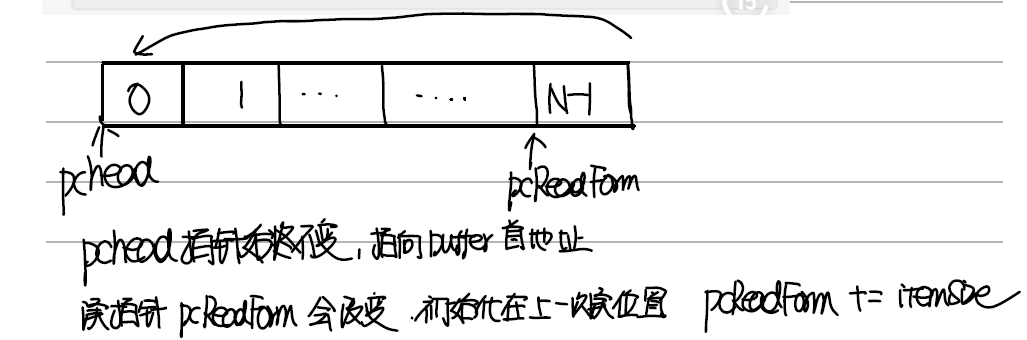 15
0 1 ... .... N-1
pchead pcReadForm
pchead指针始终不变，指向buffer首地址
读指针 pcReadForm 会改变.初始化在上一次读位置 pcReadForm += itemSize